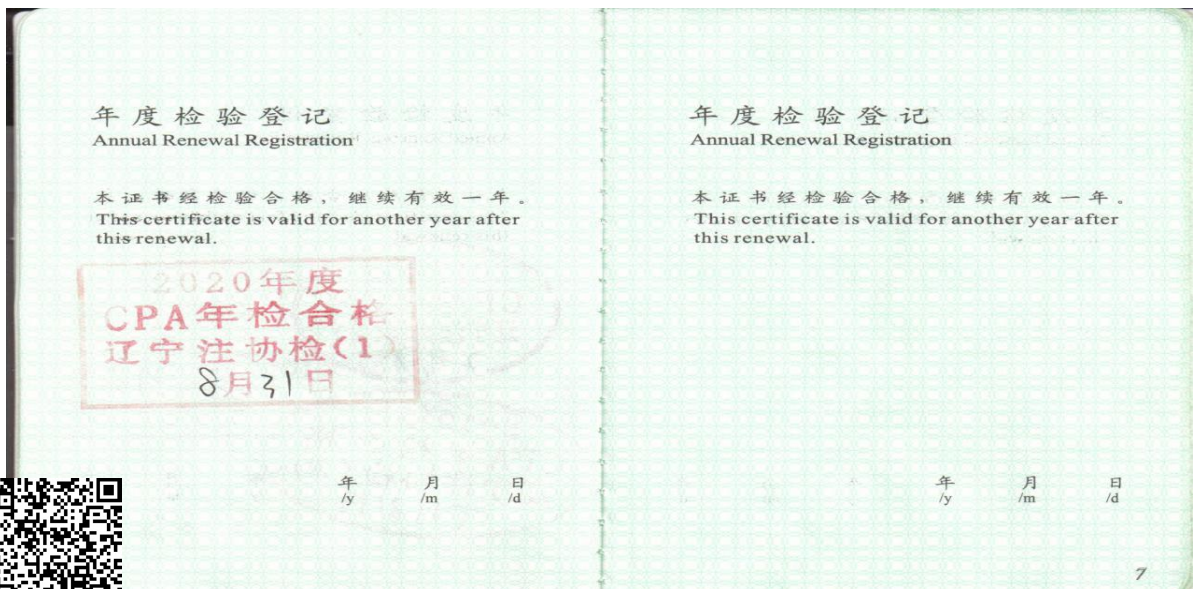 年度检验登记
Annual Renewal Registration
本证书经检验合格，继续有效一年。
This certificate is valid for another year after
this renewal.
2020年度
CPA年检合格
辽宁注协检(1)
8月31日
年 月 日
/y /m /d
年度检验登记
Annual Renewal Registration
本证书经检验合格，继续有效一年。
This certificate is valid for another year after
this renewal.
年 月 日
/y /m /d
7